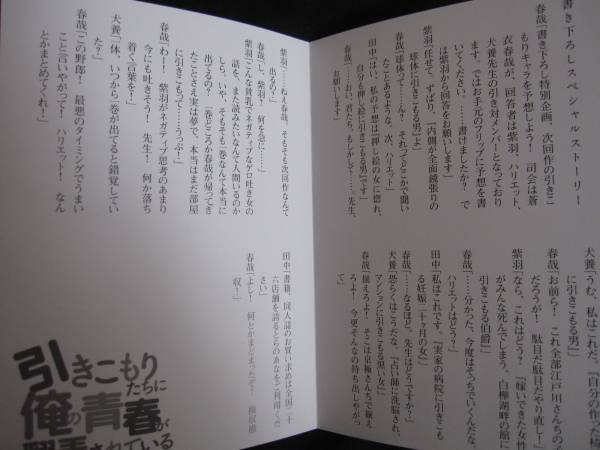 書き下ろしスペシャルストーリー
春哉「書き下ろし特別企画、次回作の引きこ
もりキャラを予想しよう！　司会は蒼
衣春哉が、回答者は紫羽、ハリエット、
犬養先生の引き対メンバーとなっており
ます。ではお手元のフリップに予想を書
いてください。……書けましたか？　で
は紫羽から回答をお願いします」
紫羽「任せて。ずばり、『内側が全面鏡張りの
球体に引きこもる男』よ」
春哉「球体って……ん？　それってどこかで聞い
たことあるような。次、ハリエット」
田中「はい。私の予想は『押し絵の女に惚れ、
自分も押し絵に引きこもる男』です」
春哉「……おい、君たち、もしかして……。先生、
お願いします」
犬養「うむ、私はこれだ。『自分の作った椅
に引きこもる男』」
春哉「お前ら！　これ全部江戸川さんちの
だろうが！　駄目だ駄目だやり直し！」
紫羽「なら、これはどう？『嫁いできた女性
がみんな死んでしまう、白樺湖畔の館に
引きこもる伯爵』」
春哉「……分かった、今度はそっちでいくんだな。
ハリエットはどう？」
田中「私はこれです。『実家の病院に引きこも
る妊娠二十ヶ月の女』」
春哉「……なるほど。先生はどうですか？」
犬養「恐らくはこうだな。『占い師に洗脳され、
マンションに引きこもる黒い女』」
春哉「揃えろよ！　そこは京極さんちで揃え
ろよ！　今更そんなの持ち出しやがっ
て」
紫羽「……ねぇ春哉。そもそも次回作なんて
出るの？」
春哉「し、紫羽？　何を急に……」
紫羽「こんな貧乳でネガティブなゲロ吐き女の
話を、また読みたいなんて人間いるのか
しら。いや、そもそも一巻なんて本当に
出てるの？　一巻どころか春哉が帰ってき
たことさえ実は夢で、本当はまだ部屋
に引きこもって……うっぷ！」
春哉「わー！　紫羽がネガティブ思考のあまり
今にも吐きそう！　先生！　何か落ち
着く言葉を！」
犬養「一体いつから一巻が出てると錯覚してい
た？」
春哉「この野郎！　最悪のタイミングでうまい
こと言いやがって！　ハリエット！　なん
とかまとめてくれ！」
田中「書籍、同人誌のお買い求めは全国二十
六店舗を誇るとらのあなをご利用くだ
さい」
春哉「よし！　何とかまとまったぞ！　撤収撤
収！」
引きこもり
たちに
俺の青春が
翻弄されている